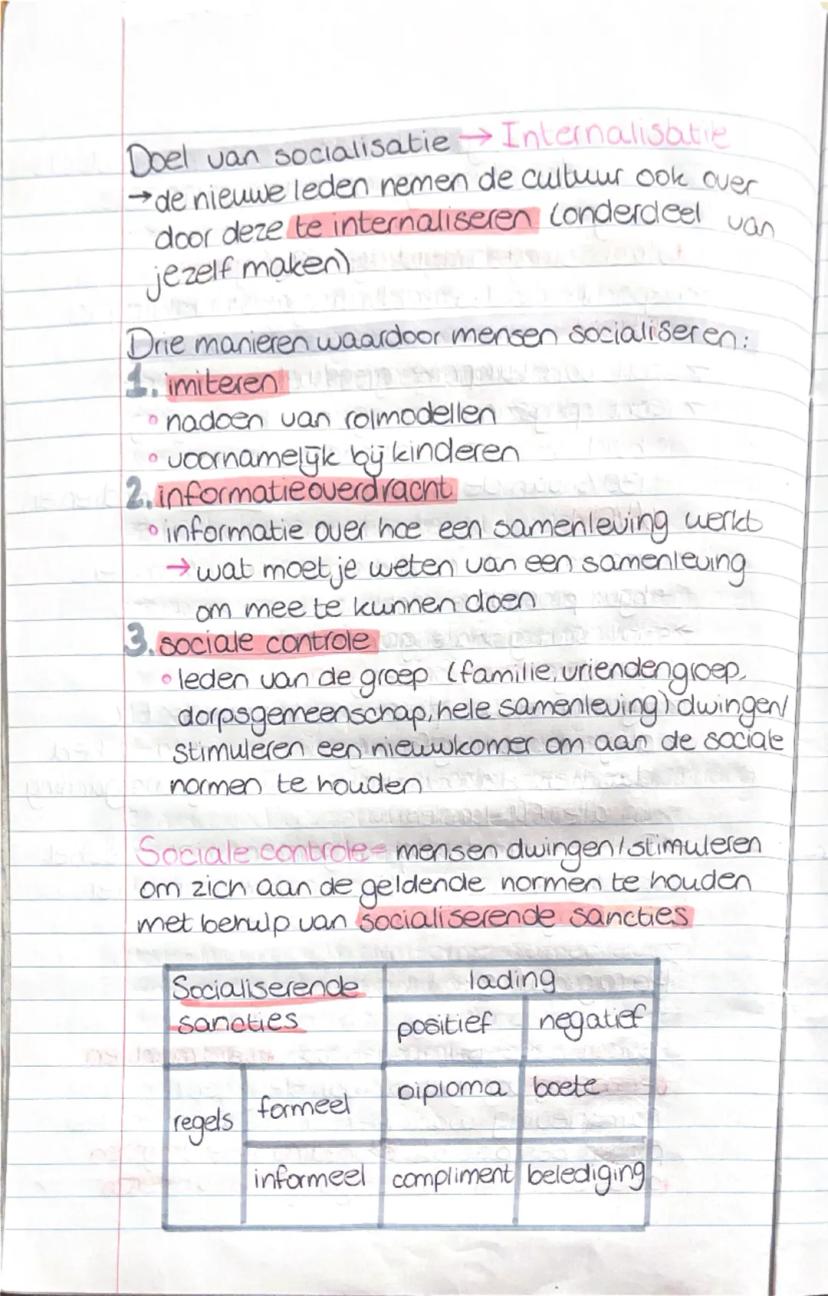 Doel van socialisatie → Internalisatie
→ de nieuwe leden nemen de cultuur ook over
door deze te internaliseren (onderdeel van
jezelf maken)
Drie manieren waardoor mensen socialiseren:
1. imiteren
◦ nadoen van rolmodellen
◦ voornamelijk bij kinderen
2. informatieoverdracht
◦ informatie over hoe een samenleving werkt
→ wat moet je weten van een samenleving
om mee te kunnen doen
3. sociale controle
◦ leden van de groep (familie, vriendengroep,
dorpsgemeenschap, hele samenleving) dwingen/
stimuleren een nieuwkomer om aan de sociale
normen te houden
Sociale controle = mensen dwingen/stimuleren
om zich aan de geldende normen te houden
met behulp van socialiserende sancties
Socialiserende lading
sancties positief negatief
regels formeel Diploma boete
informeel compliment belediging